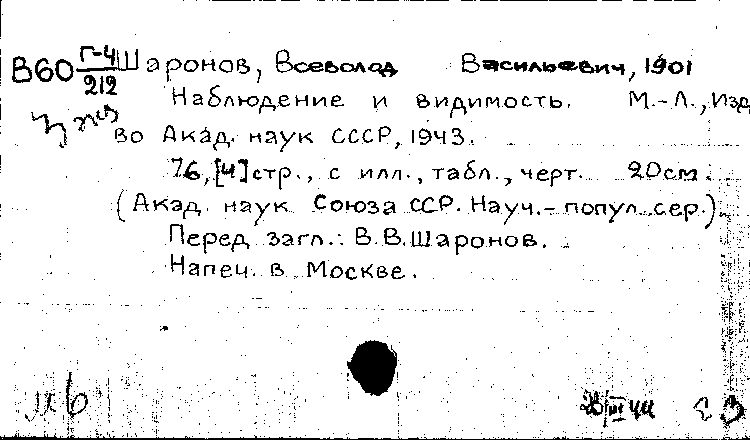 В60 Г-4/212 Шаронов, Всеволод Васильевич, 1901
Наблюдение и видимость. М.-Л., Изд
во Акад. наук СССР, 1943.
76, [4] стр., с илл., табл., черт. 20 см.
(Акад. наук Союза ССР. Науч.-попул. сер.)
Перед загл.: В.В. Шаронов.
Напеч. в Москве.